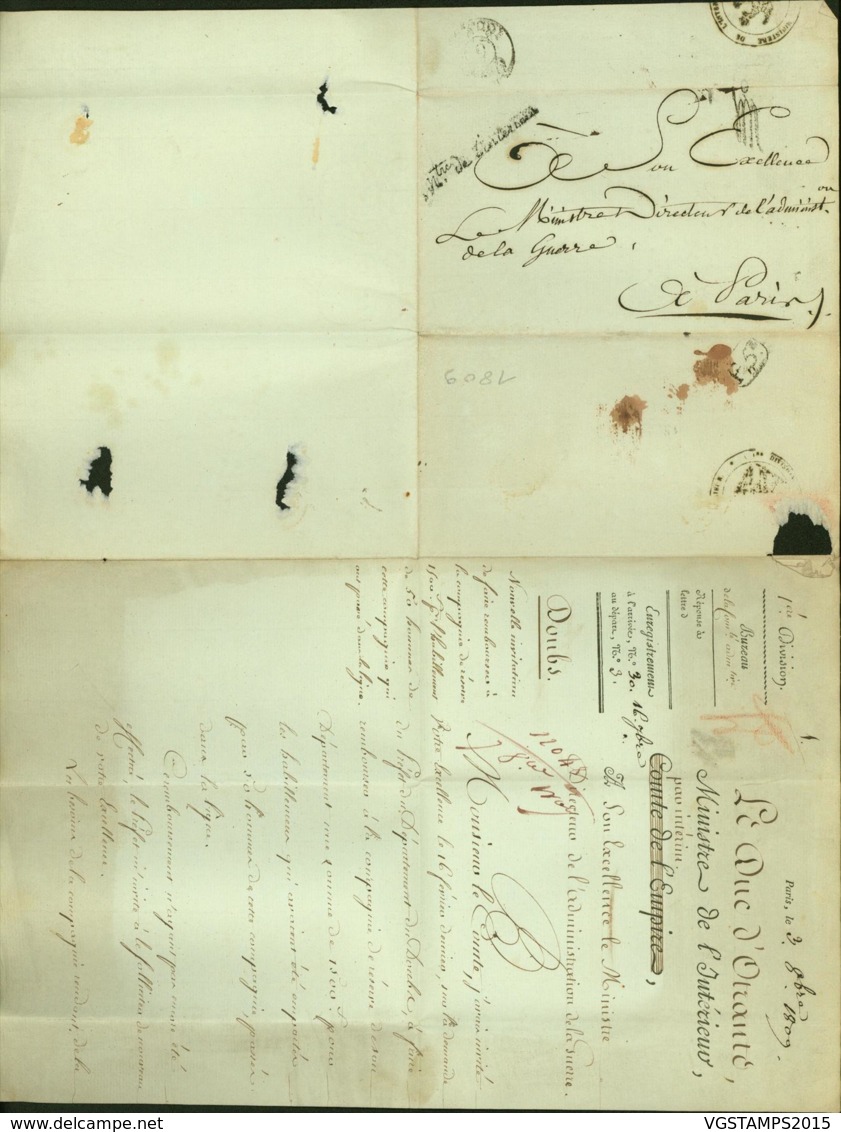 Mtre. de l'interieur
À Son Excellence
Le Ministre Directeur de l'administ.on
de la Guerre,
À Paris.
1809
Paris, le 3 8bre 1809.
1ere Division.
Bureau
Réponse à la
lettre d
Enregistrement
à l'arrivée, N.° 30. 16. 9bre
au départ, N.° 3.
Doubs.
Nouvelle invitation
de faire rembourser à
la compagnie de réserve
1500.f d'habillement
de 50 hommes de
cette compagnie qui
ont passé dans la ligne.
Le Duc d'Otrante,
Ministre de l'Intérieur,
par intérim
Comte de l'Empire,
À Son Excellence le Ministre
Directeur de l'administration de la Guerre.
Monsieur le Comte, j'avais invité
Votre Excellence le 16 février dernier, sur la demande
du Préfet du Département du Doubs, à faire
rembourser à la compagnie de réserve de son
Département une somme de 1500.f pour
les habillemens qui avaient été emportés
par 50 hommes de cette compagnie, passés
dans la ligne.
Ce remboursement n'ayant pas encore été
effectué, le Préfet m'invite à le solliciter de nouveau
de votre Excellence.
Les besoins de la compagnie rendent, de la
VGSTAMPS2015